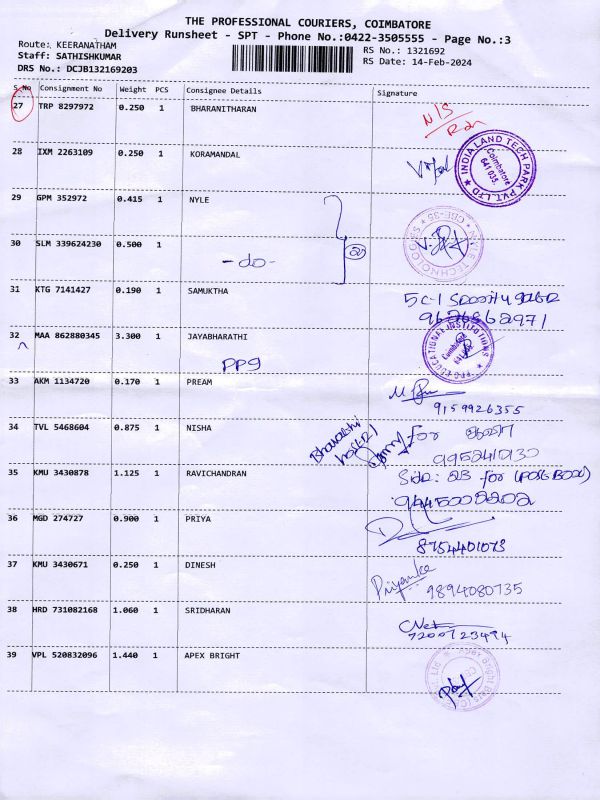 THE PROFESSIONAL COURIERS, COIMBATORE
Delivery Runsheet - SPT - Phone No.:0422-3505555 - Page No.:3
Route: KEERANATHAM
Staff: SATHISHKUMAR
DRS No.: DCJB132169203
RS No.: 1321692
RS Date: 14-Feb-2024
S.No Consignment No Weight PCS Consignee Details Signature
27 TRP 8297972 0.250 1 BHARANITHARAN
N/S
28 IXM 2263109 0.250 1 KORAMANDAL
INDIA LAND TECH PARK PVT.LTD
Coimbatore
641 035.
29 GPM 352972 0.415 1 NYLE
30 SLM 339624230 0.500 1
-do-
31 KTG 7141427 0.190 1 SAMUKTHA
9626862971
32 MAA 862880345 3.300 1 JAYABHARATHI
PPG
EDUCATIONAL INSTITUTIONS
Coimbatore
33 AKM 1134720 0.170 1 PREAM
9159926355
34 TVL 5468604 0.875 1 NISHA
for
9952410130
35 KMU 3430878 1.125 1 RAVICHANDRAN
for
9445002202
36 MGD 274727 0.900 1 PRIYA
8754401073
37 KMU 3430671 0.250 1 DINESH
Priyanka
9894080735
38 HRD 731082168 1.060 1 SRIDHARAN
7200723494
39 VPL 520832096 1.440 1 APEX BRIGHT